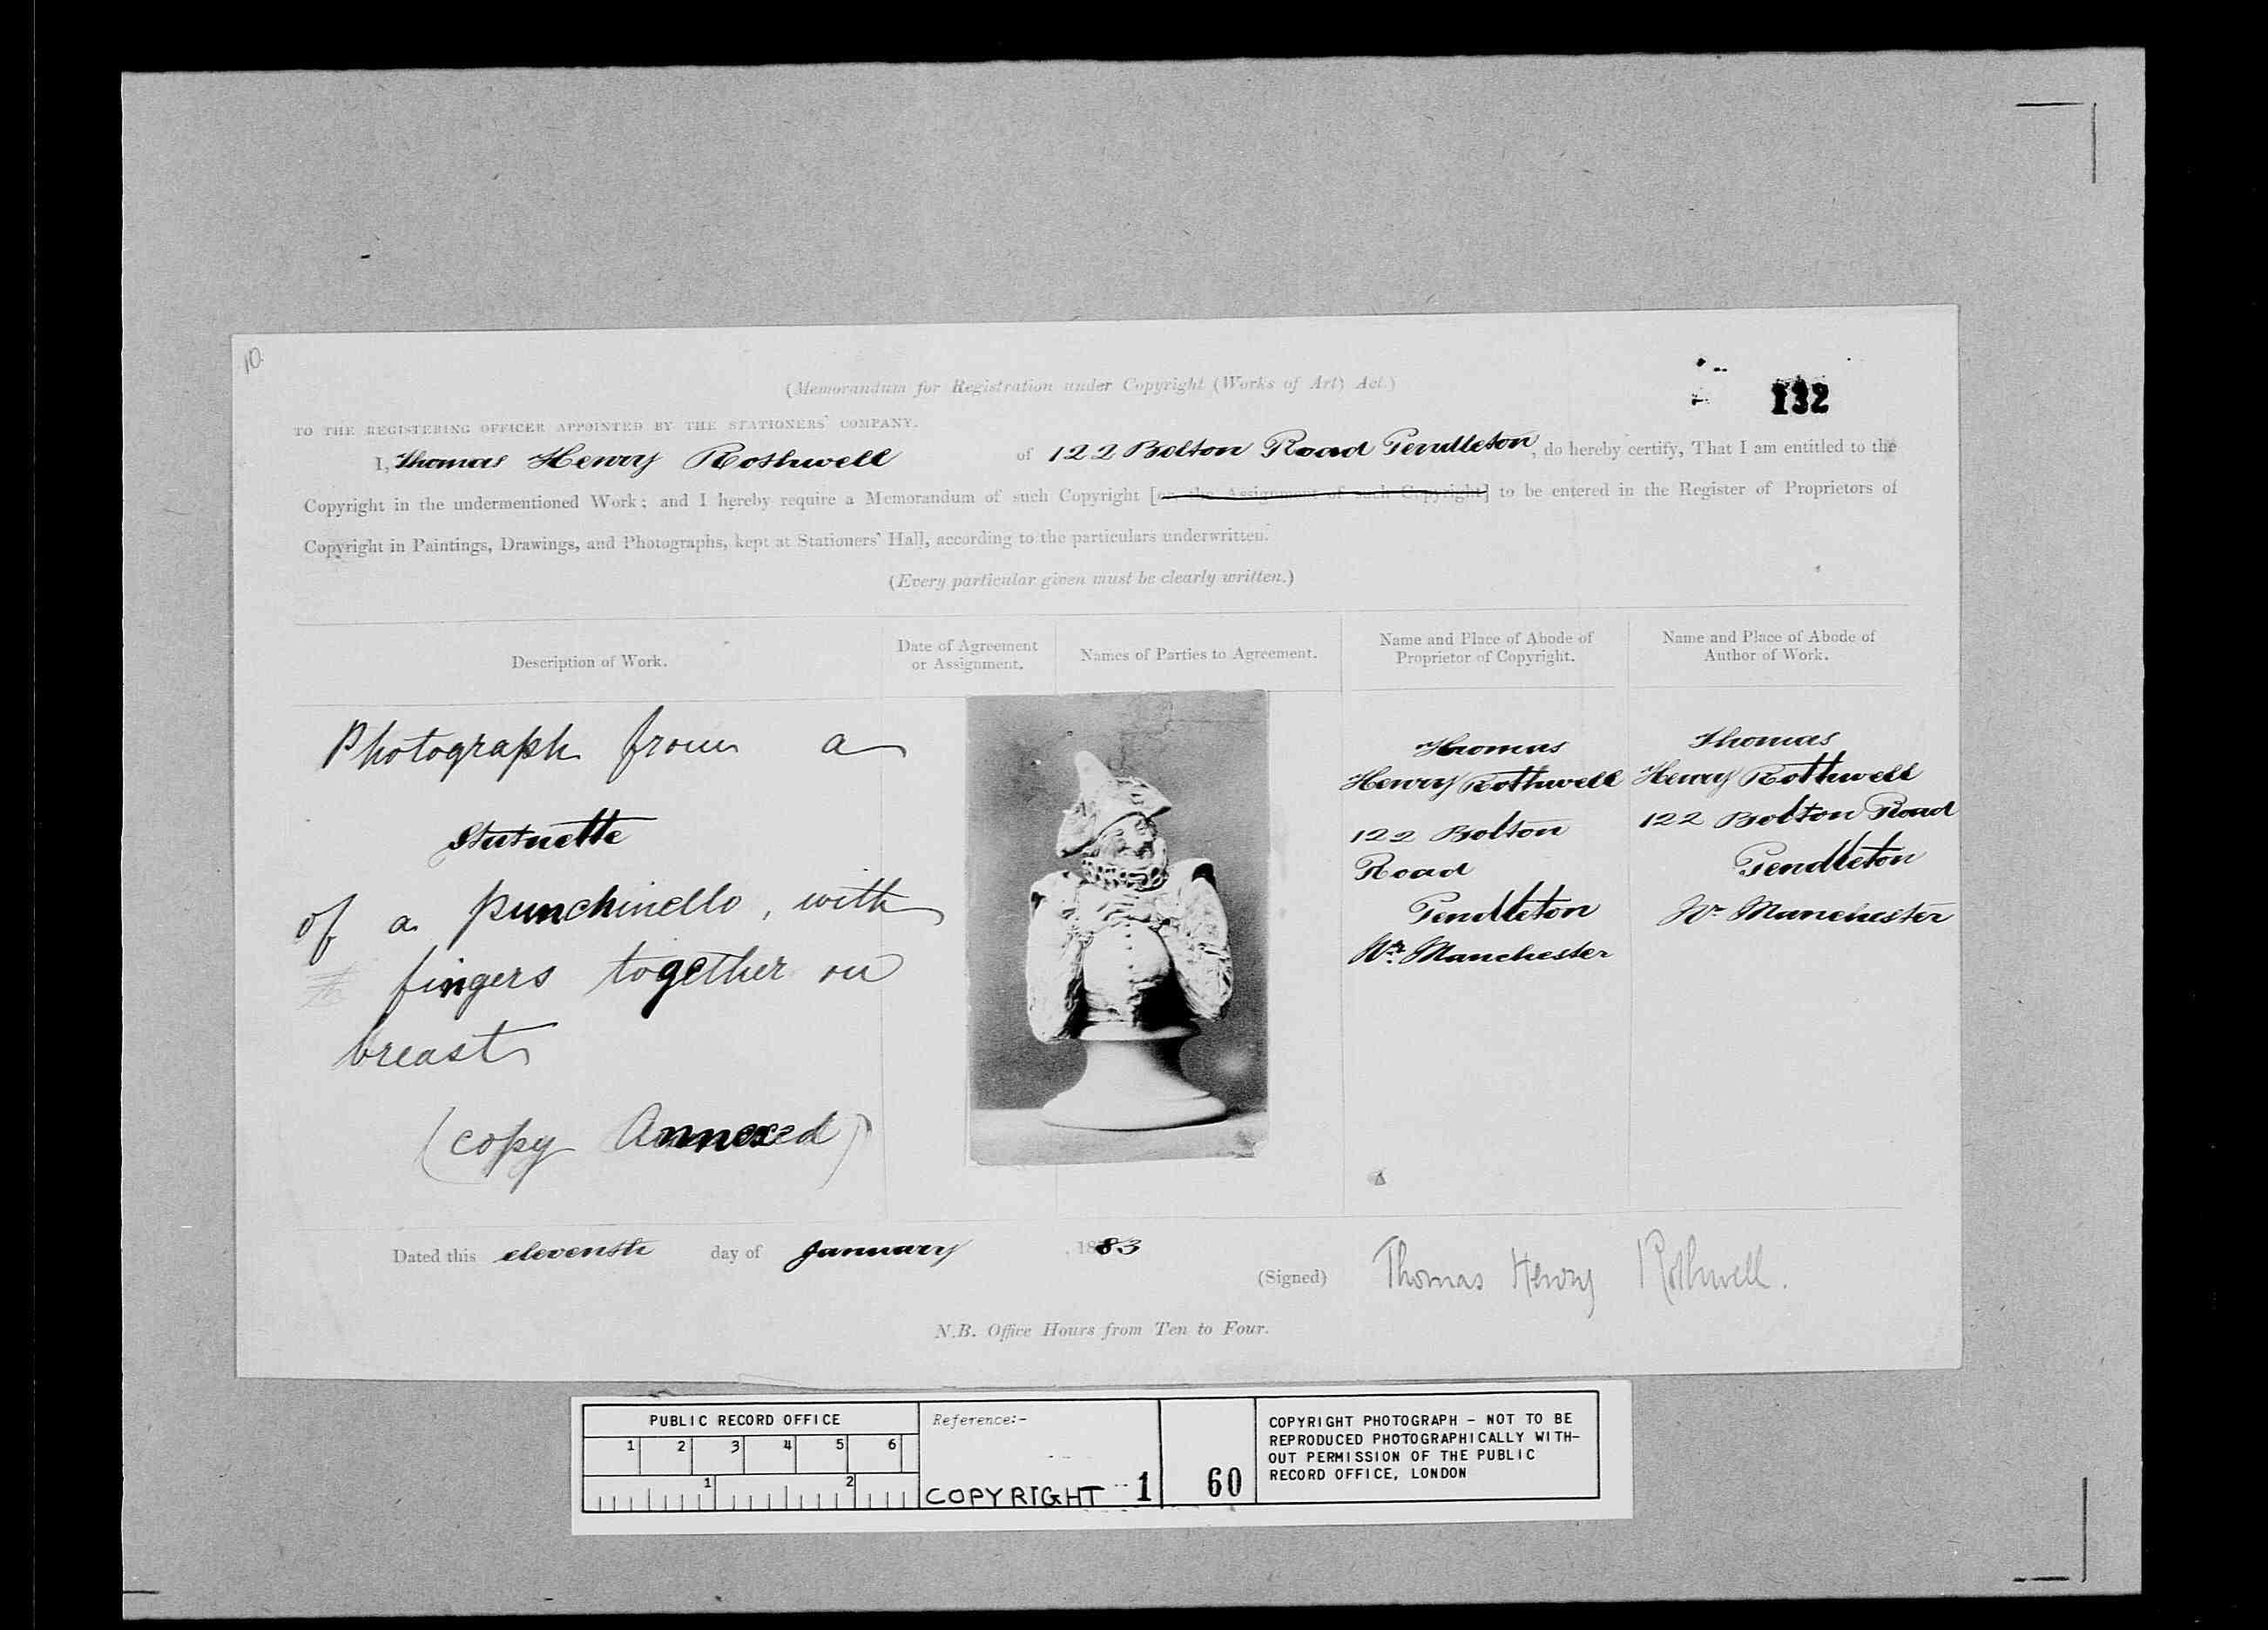 10.
(Memorandum for Registration under Copyright (Works of Art) Act.)
132
TO THE REGISTERING OFFICER APPOINTED BY THE STATIONERS' COMPANY.
I, Thomas Henry Rothwell of 122 Bolton Road Pendleton, do hereby certify, That I am entitled to the
Copyright in the undermentioned Work; and I hereby require a Memorandum of such Copyright [or the Assignment of such Copyright] to be entered in the Register of Proprietors of
Copyright in Paintings, Drawings, and Photographs, kept at Stationers' Hall, according to the particulars underwritten.
(Every particular given must be clearly written.)
Description of Work.
Photograph from a
Statuette
of a punchinello, with
fingers together on
breast
(copy Annexed)
Date of Agreement
or Assignment.
Names of Parties to Agreement.
Name and Place of Abode of
Proprietor of Copyright.
Thomas
Henry Rothwell
122 Bolton
Road
Pendleton
Nr. Manchester
Name and Place of Abode of
Author of Work.
Thomas
Henry Rothwell
122 Bolton Road
Pendleton
Nr Manchester
Dated this eleventh day of January, 1883
(Signed) Thomas Henry Rothwell.
N.B. Office Hours from Ten to Four.
PUBLIC RECORD OFFICE
1 2 3 4 5 6
1 2
Reference:-
COPYRIGHT 1
60
COPYRIGHT PHOTOGRAPH - NOT TO BE
REPRODUCED PHOTOGRAPHICALLY WITH-
OUT PERMISSION OF THE PUBLIC
RECORD OFFICE, LONDON